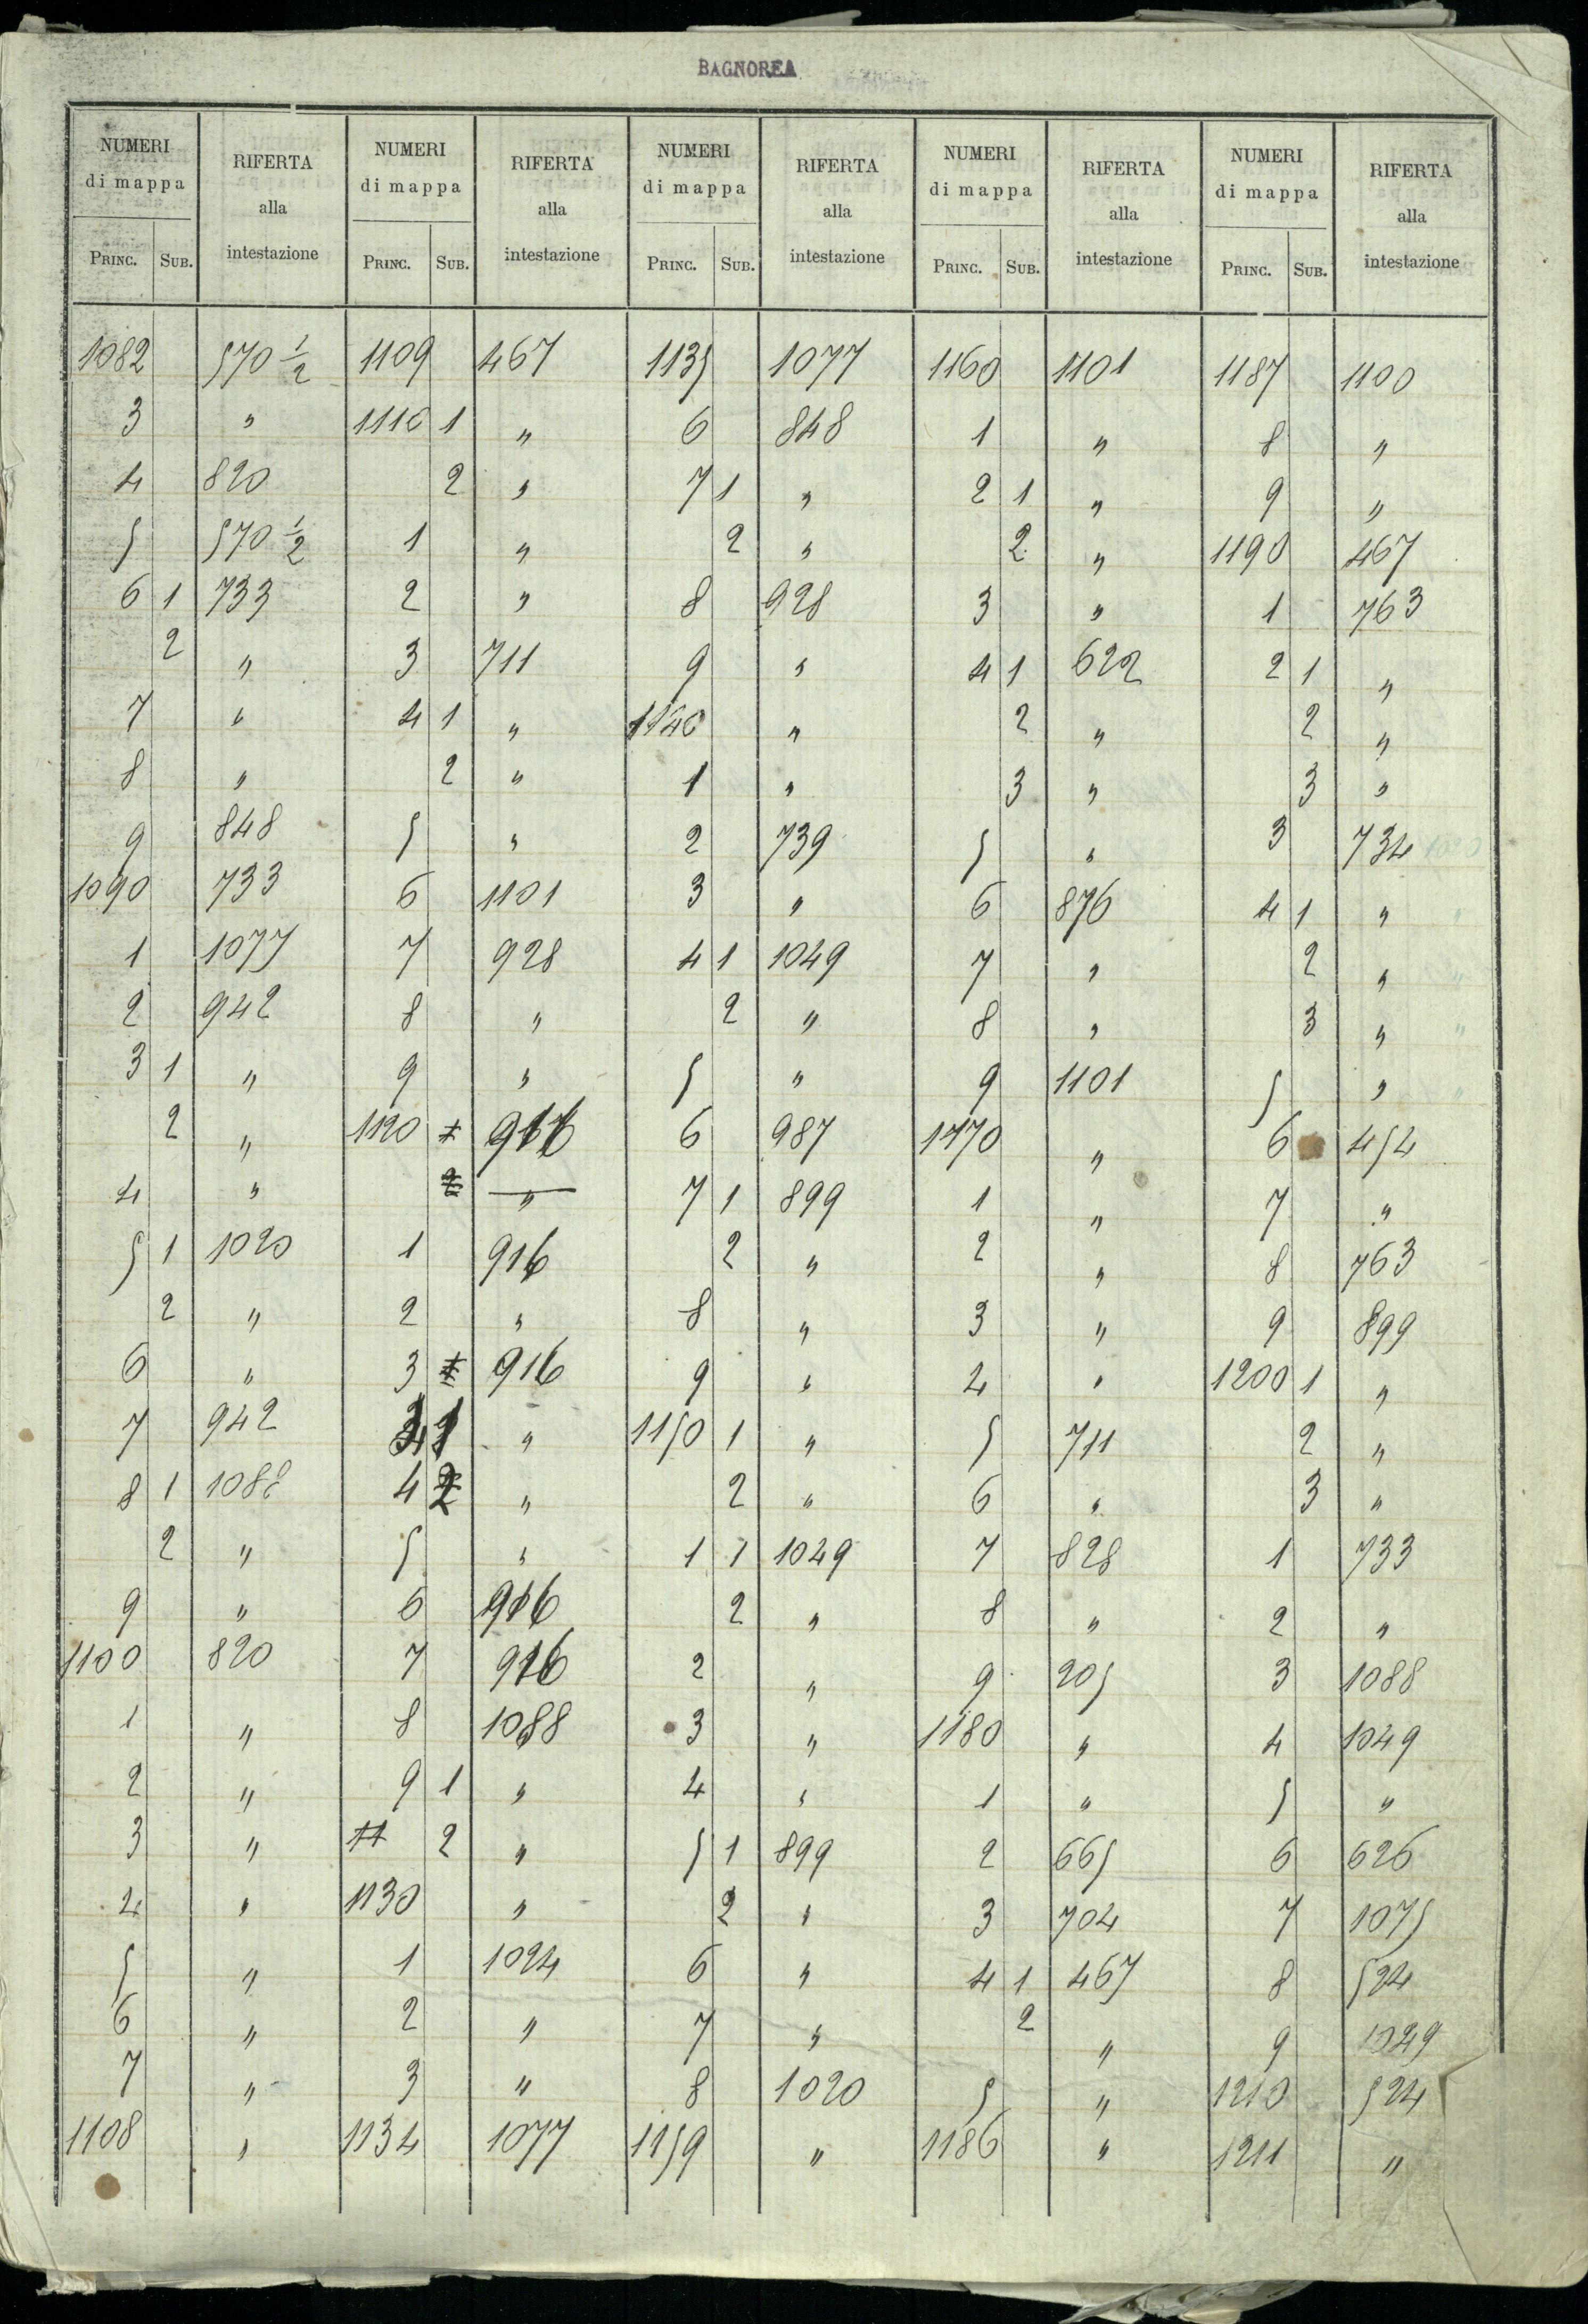 BAGNOREA
NUMERI di mappa RIFERTA alla intestazione NUMERI di mappa RIFERTA alla intestazione NUMERI di mappa RIFERTA alla intestazione NUMERI di mappa RIFERTA alla intestazione NUMERI di mappa RIFERTA alla intestazione
PRINC. SUB. PRINC. SUB. PRINC. SUB. PRINC. SUB. PRINC. SUB.
1082 570 1/2 1109 467 1135 1077 1160 1101 1187 1100
3 " 1110 1 " 6 848 1 " 8 "
4 820 2 " 7 1 " 2 1 " 9 "
5 570 1/2 1 " 2 " 2 " 1190 467
6 1 733 2 " 8 928 3 " 1 763
2 " 3 711 9 " 4 1 622 2 1 "
7 " 4 1 " 1140 " 2 " 2 "
8 " 2 " 1 " 3 " 3 "
9 848 5 " 2 739 5 " 3 734
1090 733 6 1101 3 " 6 876 4 1 "
1 1077 7 928 4 1 1049 7 " 2 "
2 942 8 " 2 " 8 " 3 "
3 1 " 9 " 5 " 9 1101 5 "
2 " 1120 916 6 987 1170 " 6 454
4 " " 7 1 899 1 " 7 "
5 1 1020 1 916 2 " 2 " 8 763
2 " 2 " 8 " 3 " 9 899
6 " 3 916 9 " 4 " 1200 1 "
7 942 4 1 " 1150 1 " 5 711 2 "
8 1 1088 4 2 " 2 " 6 " 3 "
2 " 5 " 1 1 1049 7 828 1 733
9 " 6 916 2 " 8 " 2 "
1100 820 7 916 2 " 9 205 3 1088
1 " 8 1088 3 " 1180 " 4 1049
2 " 9 1 " 4 " 1 " 5 "
3 " 2 " 5 1 899 2 665 6 626
4 " 1130 " 2 " 3 704 7 1075
5 " 1 1024 6 " 4 1 467 8 524
6 " 2 " 7 " 2 " 9 1049
7 " 3 " 8 1020 5 " 1210 524
1108 " 1134 1077 1159 " 1186 " 1211 "